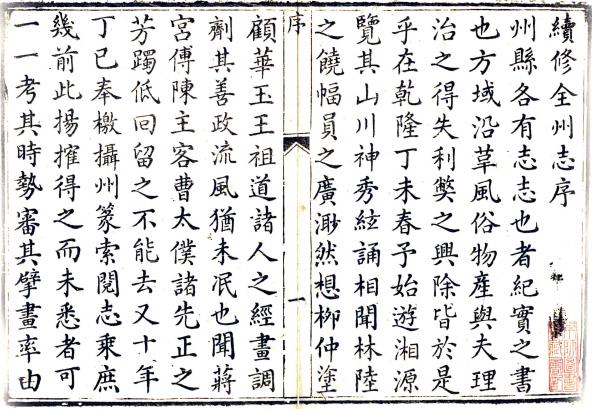 續修全州志序
州縣各有志志也者紀實之書
也方域沿革風俗物產與夫理
治之得失利獘之興除皆於是
乎在乾隆丁未春予始遊湘源
覽其山川神秀絃誦相聞林陸
之饒幅員之廣渺然想栁仲塗
序
一
顧華玉王祖道諸人之經畫調
劑其善政流風猶未泯也聞蔣
宮傅陳主客曹太僕諸先正之
芳躅低回留之不能去又十年
丁巳奉檄攝州篆索閱志乘庶
幾前此揚搉得之而未悉者可
一一考其時勢審其擘畫率由